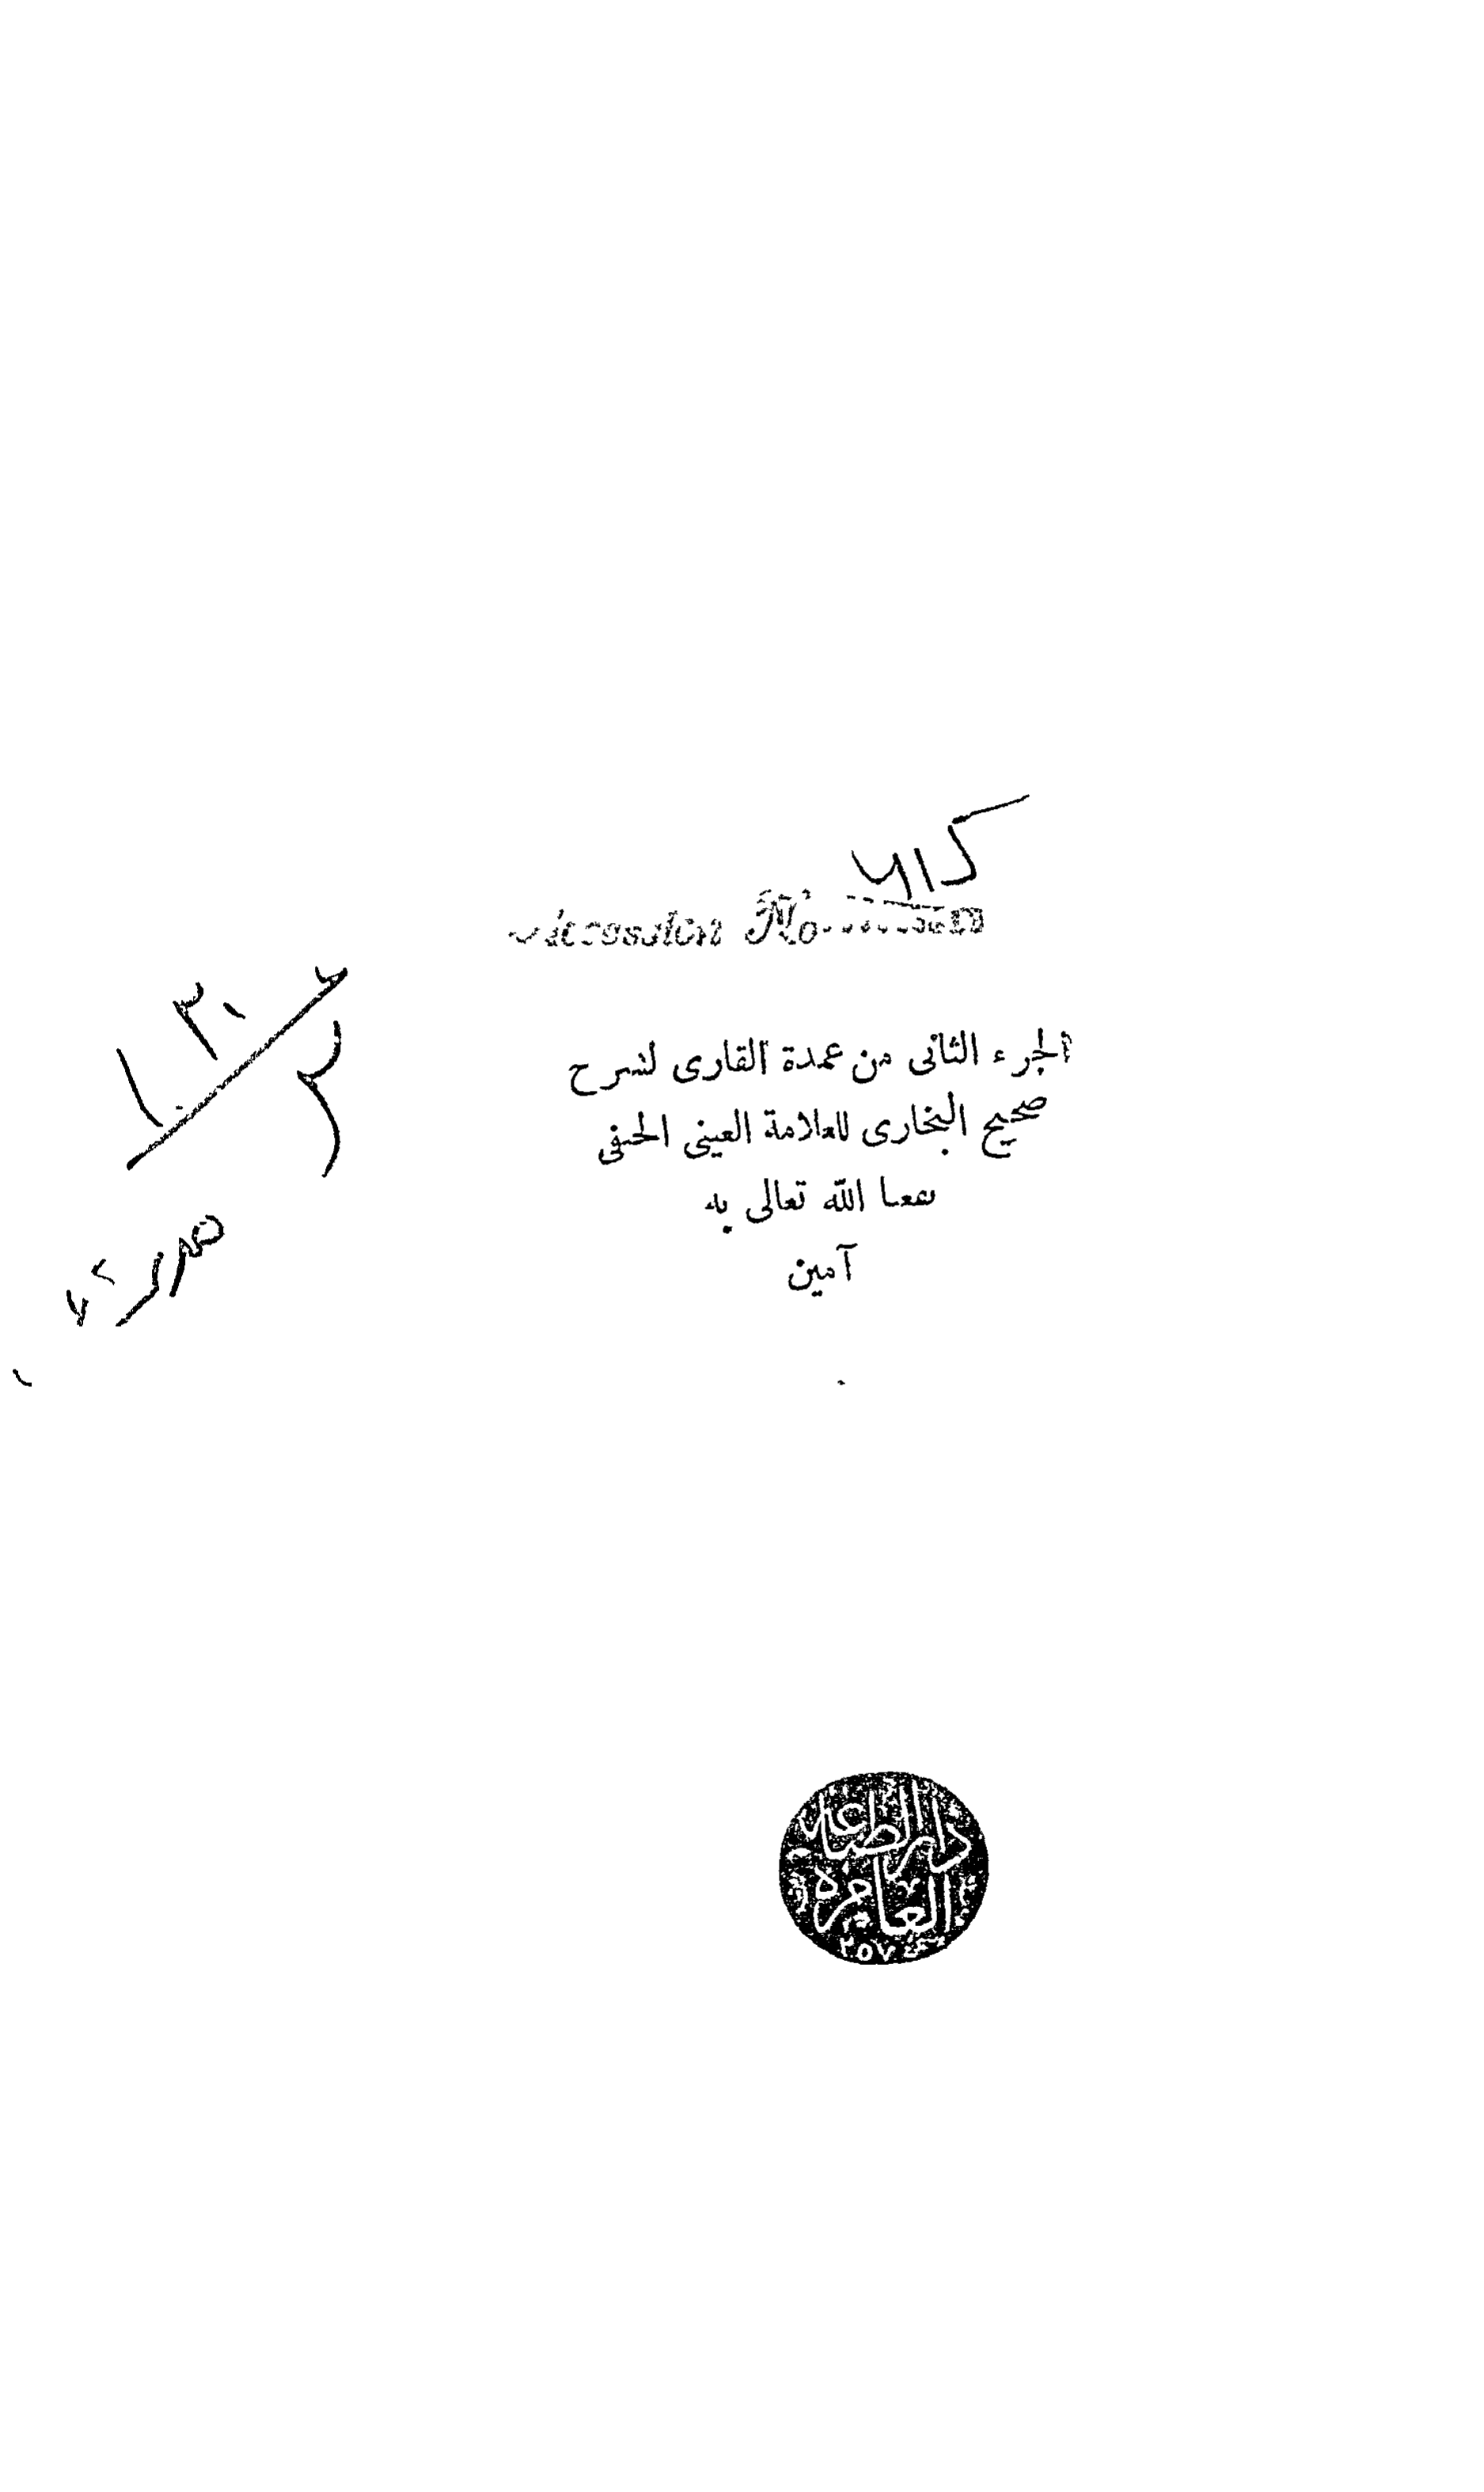 Accession No.
الجزء الثانى من عمدة القارى لشرح
صحيح البخارى للعلامة العينى الحنفى
نفعنا الله تعالى به
آمين
دار الطباعه
العامره